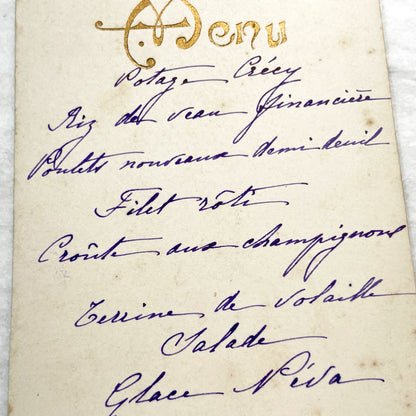 Menu
Potage Crécy
Riz de veau financière
Poulets nouveaux demi deuil
Filet rôti
Croûte aux champignons
Terrine de volaille
Salade
Glace Néva